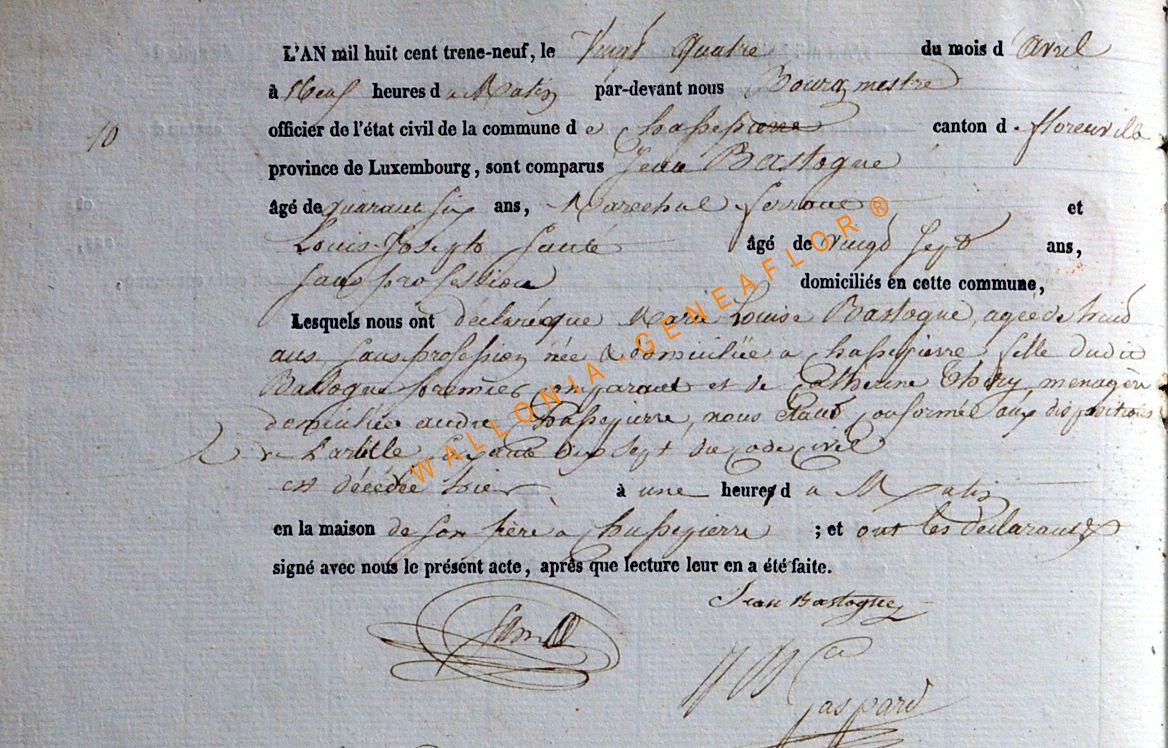 L'AN mil huit cent trene-neuf, le Vingt Quatre du mois d'Avril
à Neuf heures du Matin par-devant nous Bourgmestre
10 officier de l'état civil de la commune de Chassepierre canton de florenville
province de Luxembourg, sont comparus Jean Bastogne
âgé de quarante six ans, Marechal ferrant et
Louis Joseph âgé de vingt sept ans,
sans profession domiciliés en cette commune,
Lesquels nous ont déclaré que Marie Louise Bastogne, agée de huit
ans sans profession née & domiciliée a chassepierre fille dudit
Bastogne premier comparant et de Catherine Thiry, menagère
domiciliée audit Chassepierre, nous étant conformé aux dispositions
de L'article soixante dix sept du code civil
est décédée hier à une heure du Matin
en la maison de son père a chassepierre ; et ont les déclarants
signé avec nous le présent acte, après que lecture leur en a été faite.
Jean Bastogne
Gaspard
WALLONIA-GENEAFLOR®